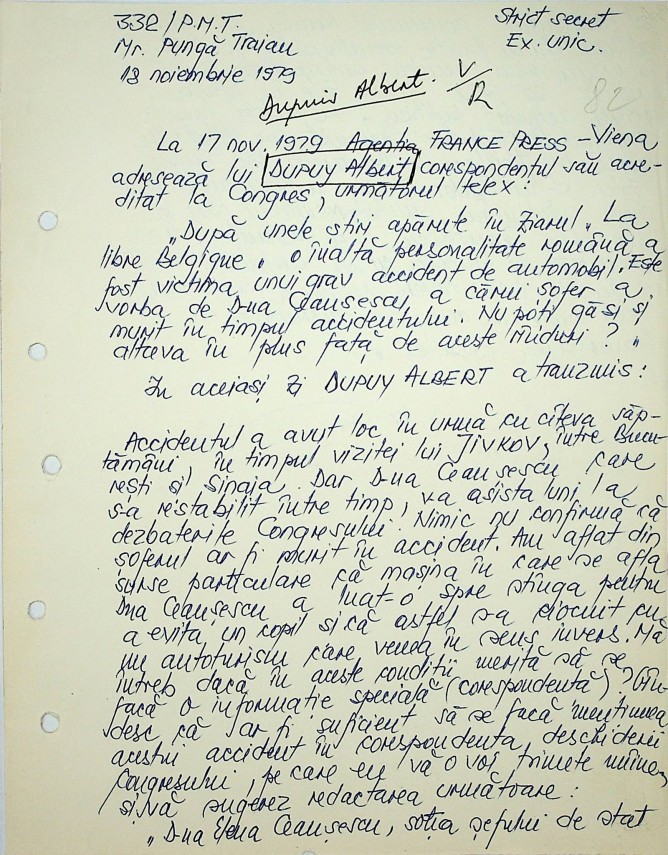 332/P.M.T.
Strict secret
Mr. Pungă Traian
Ex. unic.
18 noiembrie 1979
82
Dupuis Albert. V/R
La 17 nov. 1979 Agenția FRANCE PRESS – Viena
adresează lui DUPUY Albert corespondentul său acre-
ditat la Congres, următorul telex:
„După unele știri apărute în ziarul „La
libre Belgique" o înaltă personalitate română a
fost victima unui grav accident de automobil. Este
vorba de D-na Ceaușescu, a cărui șofer a
murit în timpul accidentului. Nu poți găsi și
altceva în plus față de aceste rînduri?"
În aceiași zi DUPUY ALBERT a tranzmis:
Accidentul a avut loc în urmă cu cîteva săp-
tămâni, în timpul vizitei lui JIVKOV, între Bucu-
rești și Sinaia. Dar D-na Ceaușescu care
s-a restabilit între timp, va asista luni la
dezbaterile Congresului. Nimic nu confirmă că
șoferul ar fi murit în accident. Am aflat din
surse particulare că mașina în care se afla
Dna Ceaușescu a luat-o spre stînga pentru
a evita un copil și că astfel s-a ciocnit cu
un autoturism care venea în sens invers. Mă
întreb dacă în aceste condiții merită să se
facă o informație specială (corespondență)? Gîn-
desc că ar fi suficient să se facă mențiunea
acestui accident în corespondența deschiderii
Congresului, pe care eu vă o voi trimete mîine,
și vă sugerez redactarea următoare:
„D-na Elena Ceaușescu, soția șefului de stat